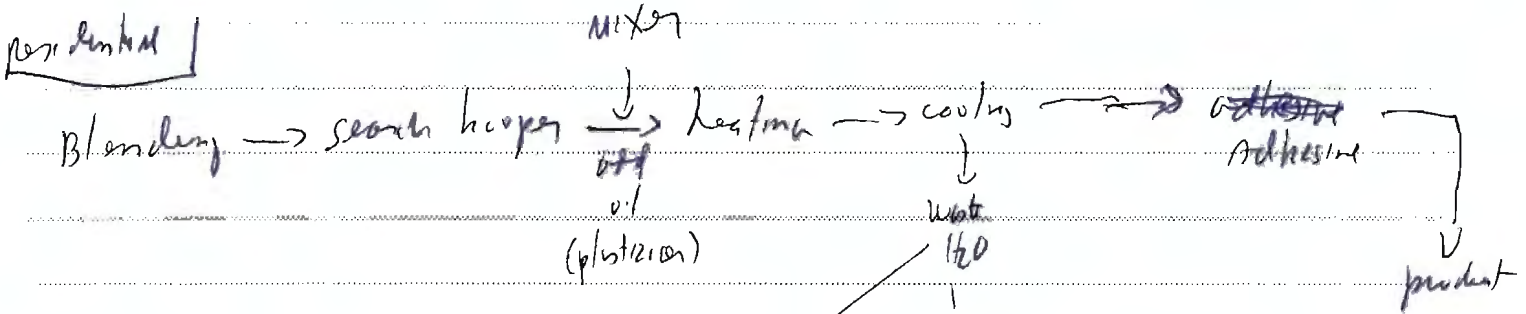 mixer
residential
Blending → search hooper → heating → cooling → Adhesive
oil
(plastizier)
waste
H2O
product